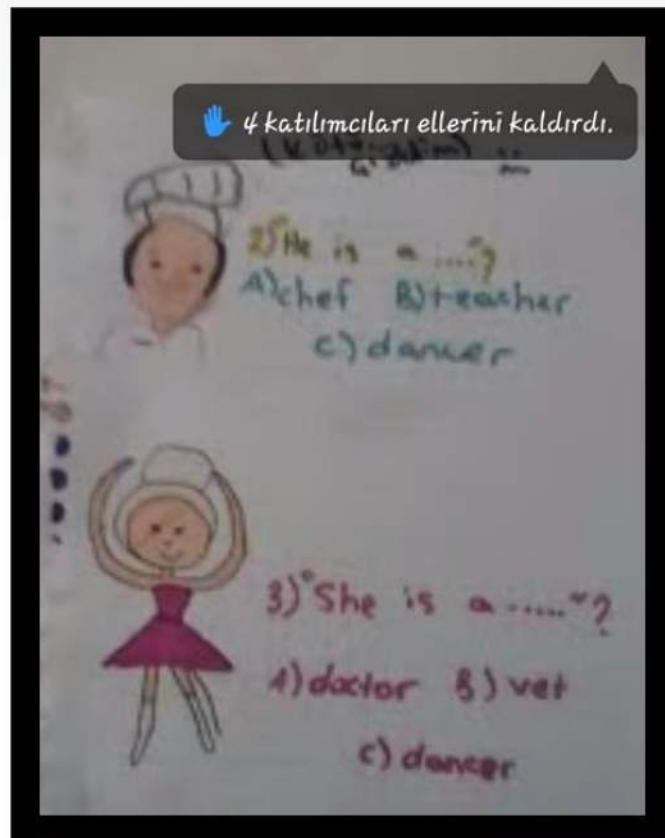 ✋ 4 katılımcıları ellerini kaldırdı.
2) "He is a ...."?
A) chef B) teacher
C) dancer
3) "She is a ....."?
A) doctor B) vet
C) dancer